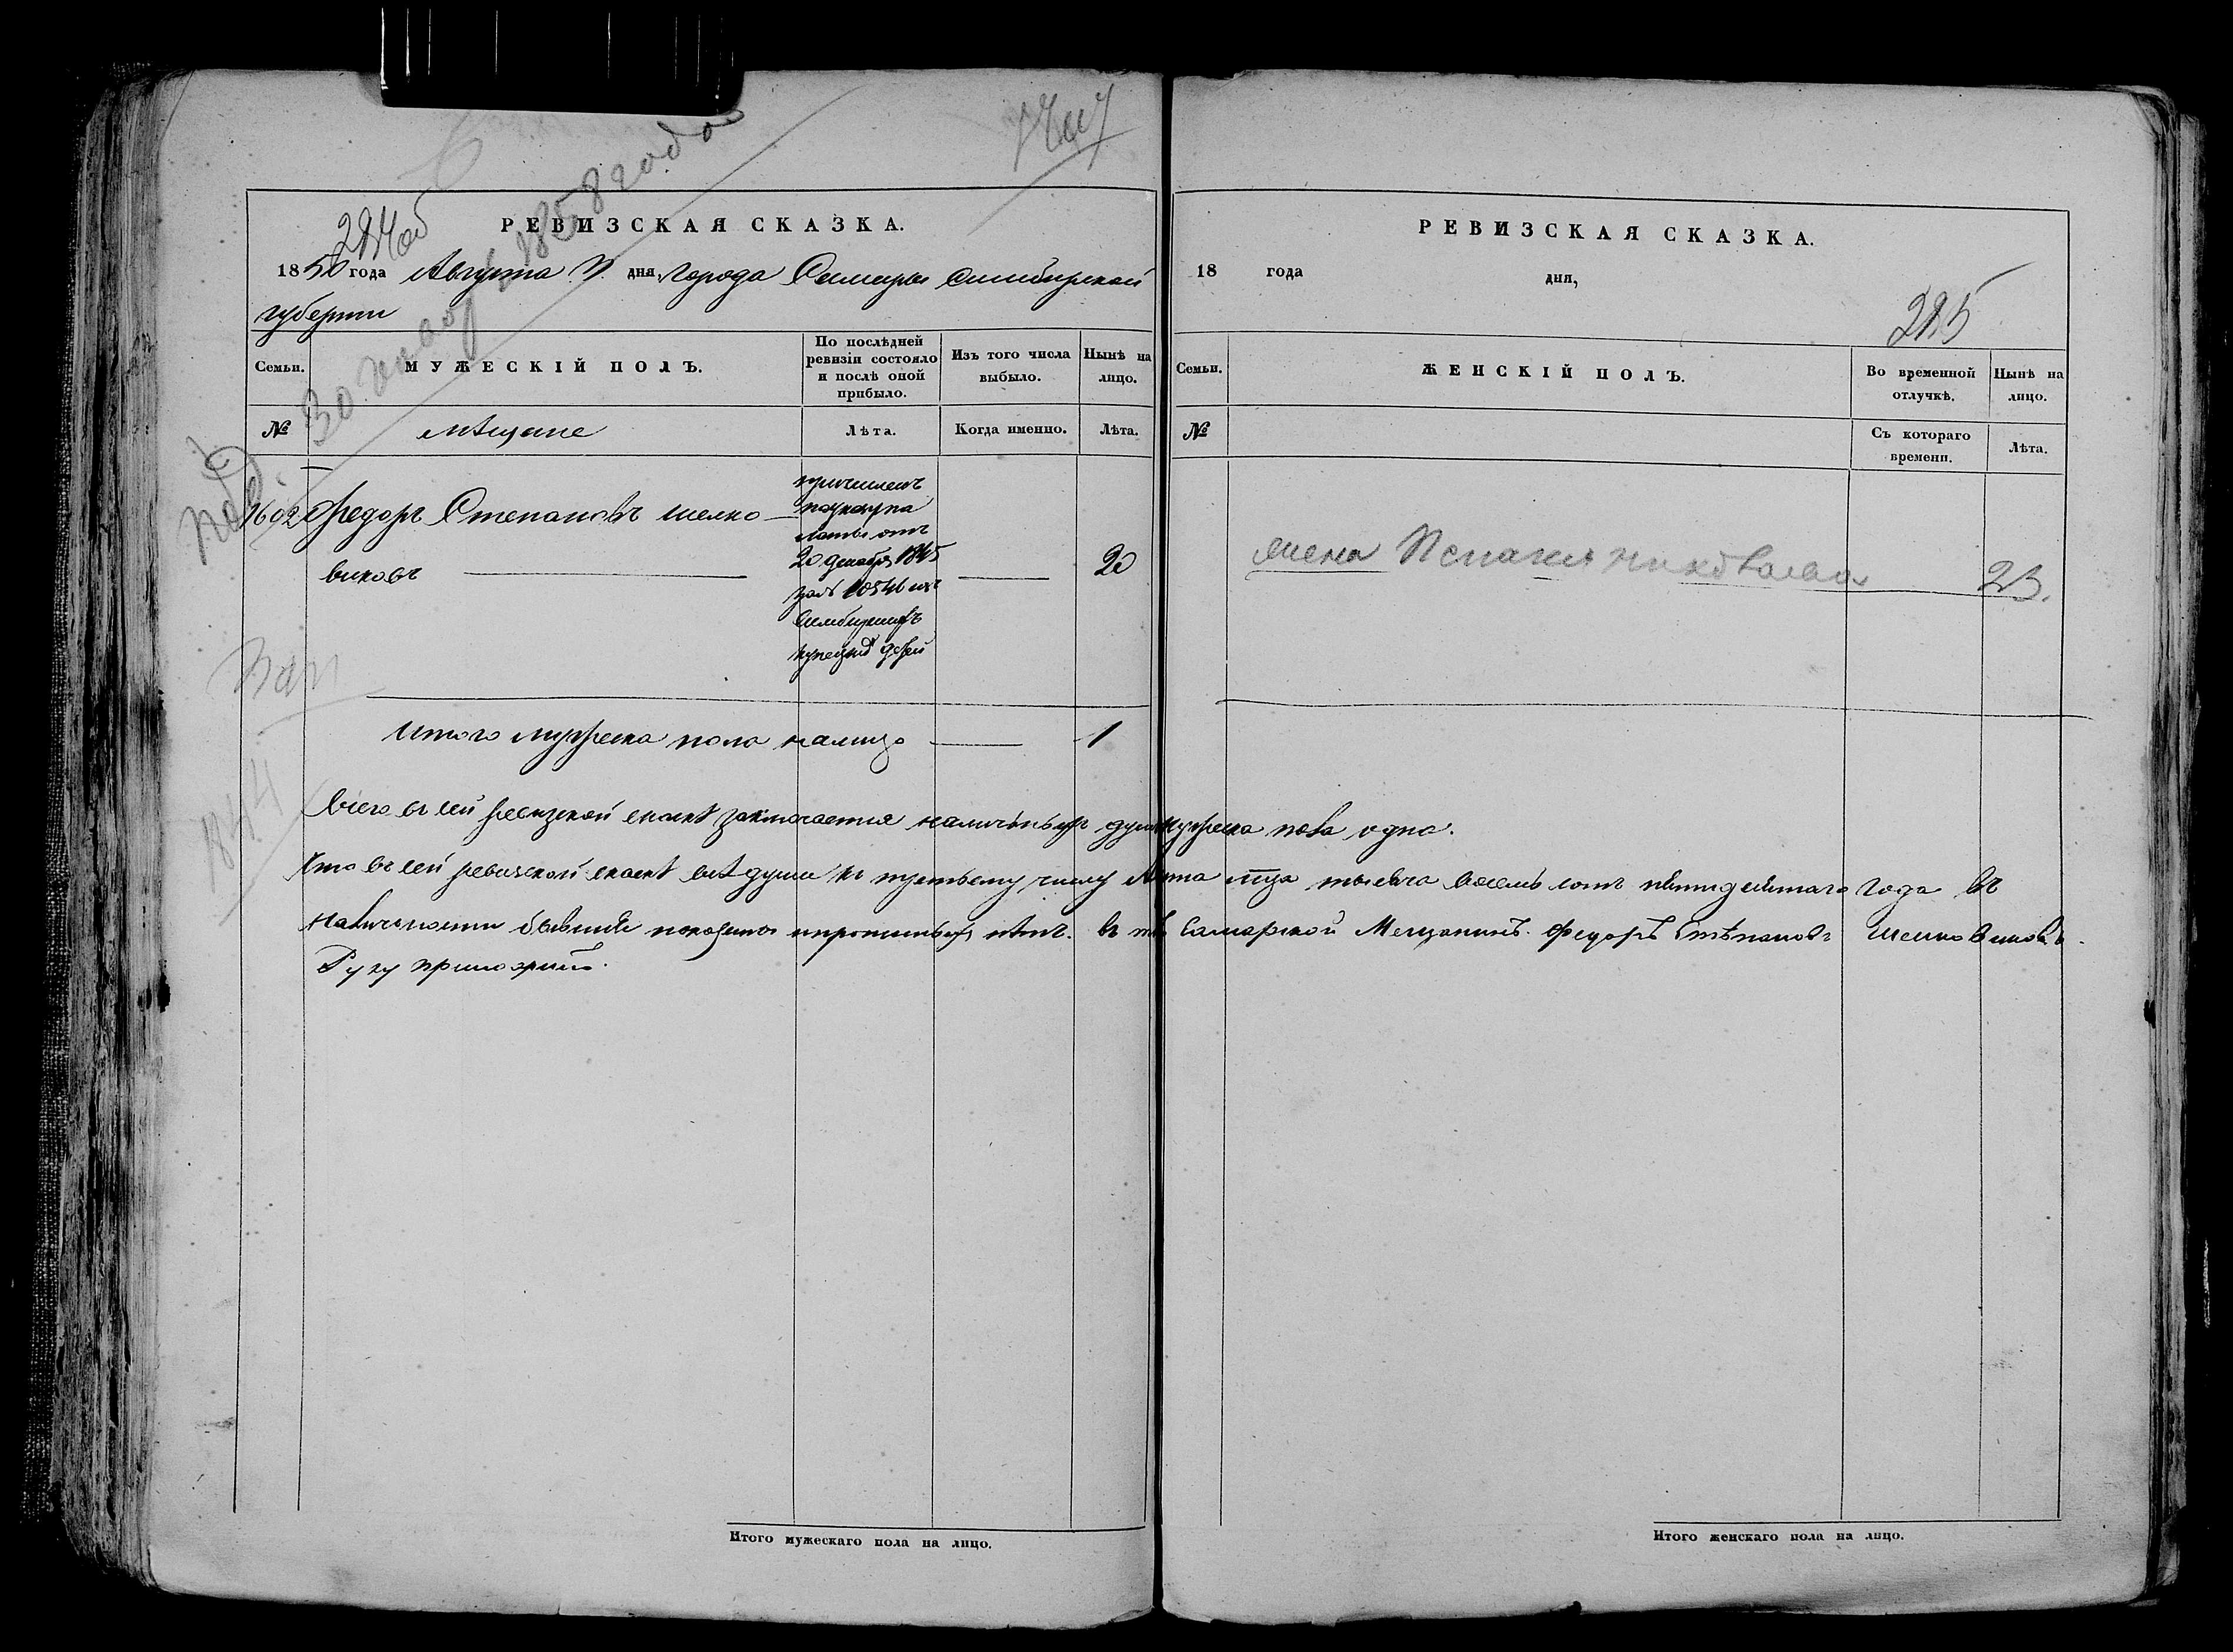 30 января 1858 года
РЕВИЗСКАЯ СКАЗКА.
1850 года Августа 3. дня, города Самары Симбирской
губернии
Семьи.
МУЖЕСКІЙ ПОЛЪ.
По послѣдней
ревизіи состояло
и послѣ оной
прибыло.
Изъ того числа
выбыло.
Нынѣ на
лицо.
№
мѣщане
Лѣта.
Когда именно.
Лѣта.
1602 Федоръ Степановъ шелко
виковъ
причисленъ
по указу па
латы отъ
20 декабря 1845
за № 10546 изъ
Симбирскихъ
купецких детей
20
Итого мужеска пола налицо 1
Всего въ сей ревизской сказке заключается наличныхъ душъ мужеска пола одна.
Что въ сей ревизской сказке все души къ третьему числу Августа тысяча восемь сотъ пятидесятаго года въ
наличности бывшие показаны и прописныхъ нетъ. въ томъ Самарской Мещанинъ Федоръ Степановъ Шелковиковъ.
Руку приложилъ.
Итого мужескаго пола на лицо.
РЕВИЗСКАЯ СКАЗКА.
18 года дня,
285
Семьи.
ЖЕНСКІЙ ПОЛЪ.
Во временной
отлучкѣ.
Нынѣ на
лицо.
№
Съ котораго
времени.
Лѣта.
жена Николаева 23.
Итого женскаго пола на лицо.